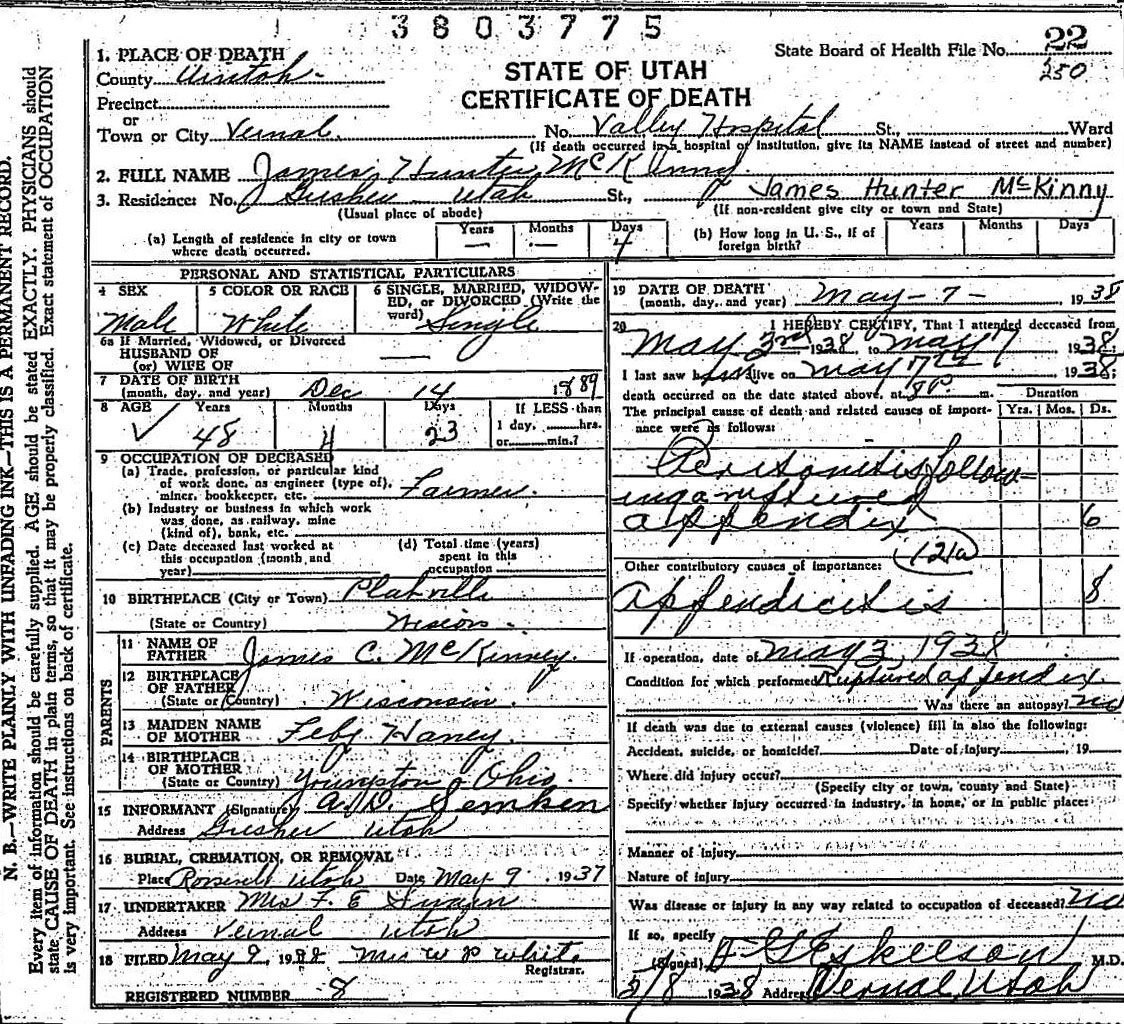 3803775
State Board of Health File No. 22
250
1. PLACE OF DEATH
County Uintah
STATE OF UTAH
CERTIFICATE OF DEATH
Precinct
or
Town or City Vernal. No. Valley Hospital St., Ward
(If death occurred in a hospital or institution, give its NAME instead of street and number)
2. FULL NAME James Hunter McKinny
3. Residence: No. Gusher Utah St., James Hunter McKinny
(Usual place of abode) (If non-resident give city or town and State)
(a) Length of residence in city or town where death occurred. Years — Months — Days 4
(b) How long in U. S., if of foreign birth? Years Months Days
PERSONAL AND STATISTICAL PARTICULARS
4 SEX Male
5 COLOR OR RACE White
6 SINGLE, MARRIED, WIDOWED, or DIVORCED (Write the word) Single
6a If Married, Widowed, or Divorced
HUSBAND OF
(or) WIFE OF —
7 DATE OF BIRTH
(month, day, and year) Dec 14 1889
8 AGE Years 48 Months 4 Days 23
If LESS than
1 day, hrs.
or min.?
9 OCCUPATION OF DECEASED
(a) Trade, profession, or particular kind
of work done, as engineer (type of),
miner, bookkeeper, etc. Farmer.
(b) Industry or business in which work
was done, as railway, mine
(kind of), bank, etc.
(c) Date deceased last worked at
this occupation (month and
year)
(d) Total time (years)
spent in this
occupation
10 BIRTHPLACE (City or Town) Platville
(State or Country) Wiscon.
PARENTS
11 NAME OF
FATHER James C. McKinney.
12 BIRTHPLACE
OF FATHER
(State or Country) Wisconsin.
13 MAIDEN NAME
OF MOTHER Feby Haney.
14 BIRTHPLACE
OF MOTHER
(State or Country) Youngston Ohio.
15 INFORMANT (Signature) A. D. Semken
Address Gusher Utah
16 BURIAL, CREMATION, OR REMOVAL
Place Roosevelt Utah Date May 9, 1937
17 UNDERTAKER Mrs F. E Swain
Address Vernal Utah
18 FILED May 9, 1938 Mrs W P White
Registrar.
REGISTERED NUMBER 8
19 DATE OF DEATH
(month, day, and year) May-7- , 1938
20 I HEREBY CERTIFY, That I attended deceased from
May 3rd 1938 to May 7 1938;
I last saw him alive on May 7th 1938;
death occurred on the date stated above, at 8P. m. Duration
The principal cause of death and related causes of importance were as follows: Yrs. Mos. Ds.
Peritonitis follow-
ing a ruptured
appendix. 6
121a
Other contributory causes of importance:
appendicitis 8
If operation, date of May 3, 1938
Condition for which performed Ruptured appendix.
Was there an autopsy? No
If death was due to external causes (violence) fill in also the following:
Accident, suicide, or homicide? Date of injury , 19
Where did injury occur?
(Specify city or town, county and State)
Specify whether injury occurred in industry, in home, or in public place:
Manner of injury
Nature of injury
Was disease or injury in any way related to occupation of deceased? No
If so, specify
(Signed) F G Eskelson M.D.
5/8 1938 Address Vernal, Utah
N. B.—WRITE PLAINLY WITH UNFADING INK—THIS IS A PERMANENT RECORD.
Every item of information should be carefully supplied. AGE should be stated EXACTLY. PHYSICIANS should
state CAUSE OF DEATH in plain terms, so that it may be properly classified. Exact statement of OCCUPATION
is very important. See instructions on back of certificate.